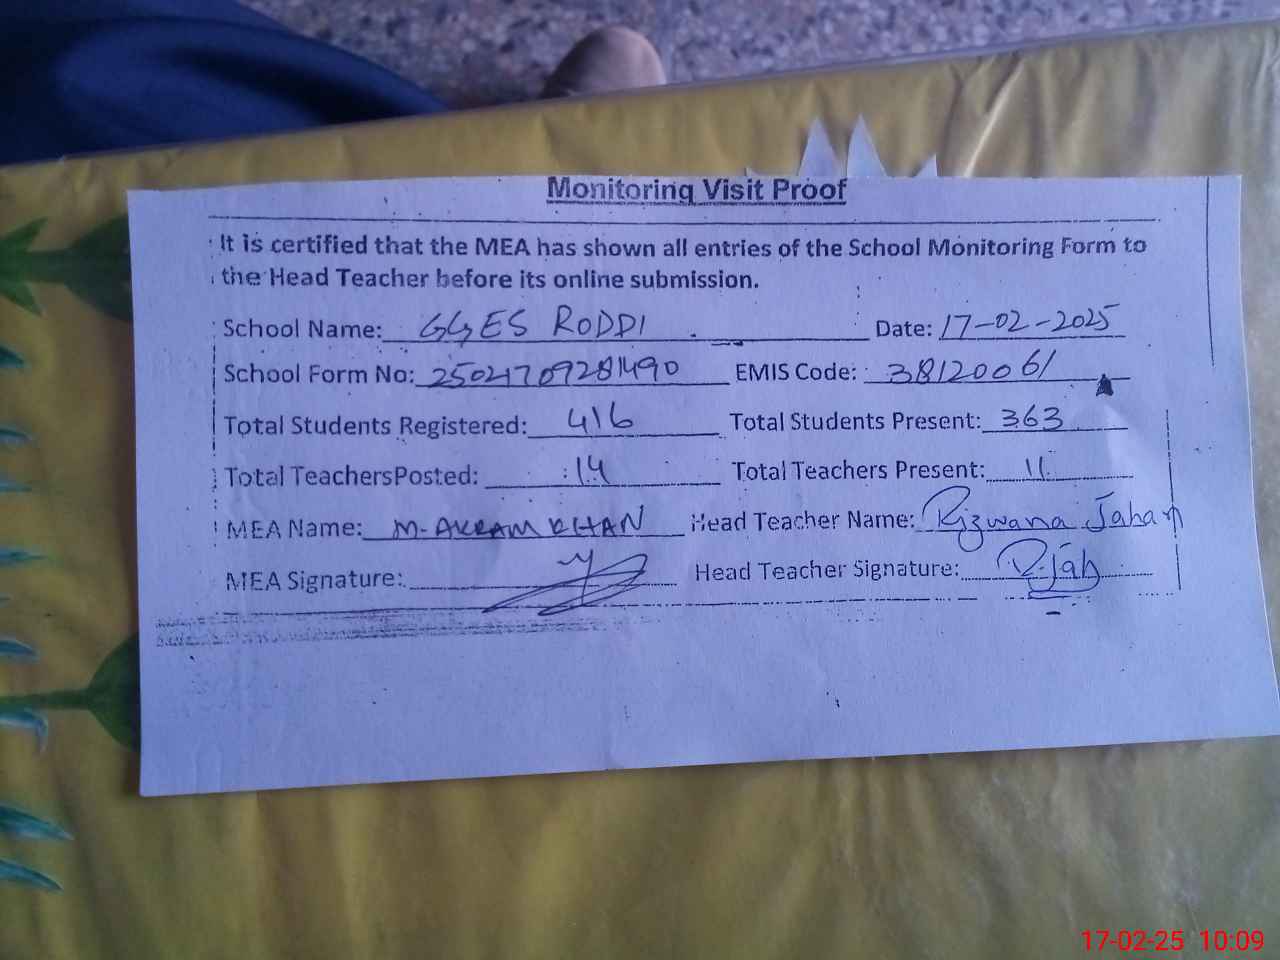 Monitoring Visit Proof
It is certified that the MEA has shown all entries of the School Monitoring Form to
the Head Teacher before its online submission.
School Name: GGES RODDI Date: 17-02-2025
School Form No: 2502170928490 EMIS Code: 38120061
Total Students Registered: 416 Total Students Present: 363
Total TeachersPosted: 14 Total Teachers Present: 11
MEA Name: M. AKRAM KHAN Head Teacher Name: Rizwana Jahan
MEA Signature: Head Teacher Signature: R.Jah
17-02-25 10:09